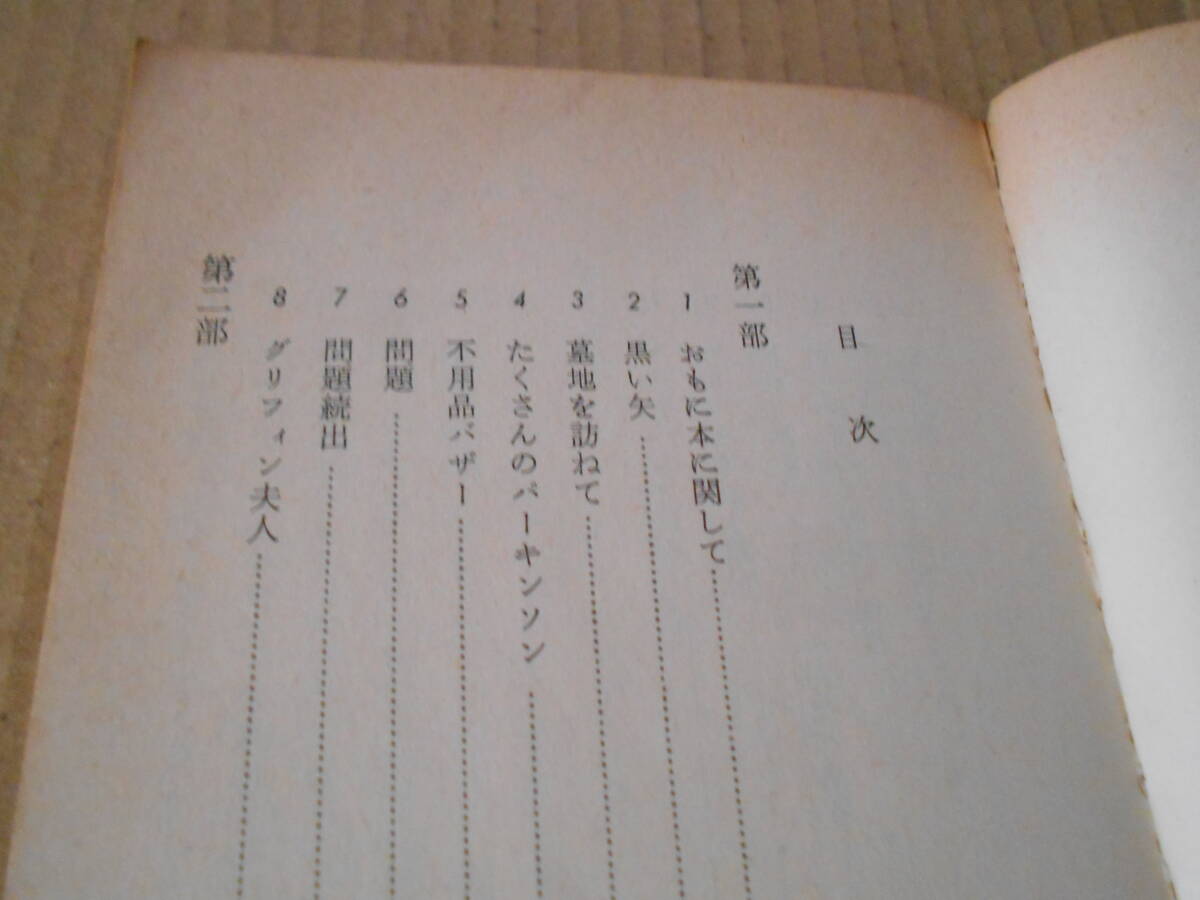 目次
第一部
1 おもに本に関して
2 黒い矢
3 墓地を訪ねて
4 たくさんのパーキンソン
5 不用品バザー
6 問題
7 問題続出
8 グリフィン夫人
第二部